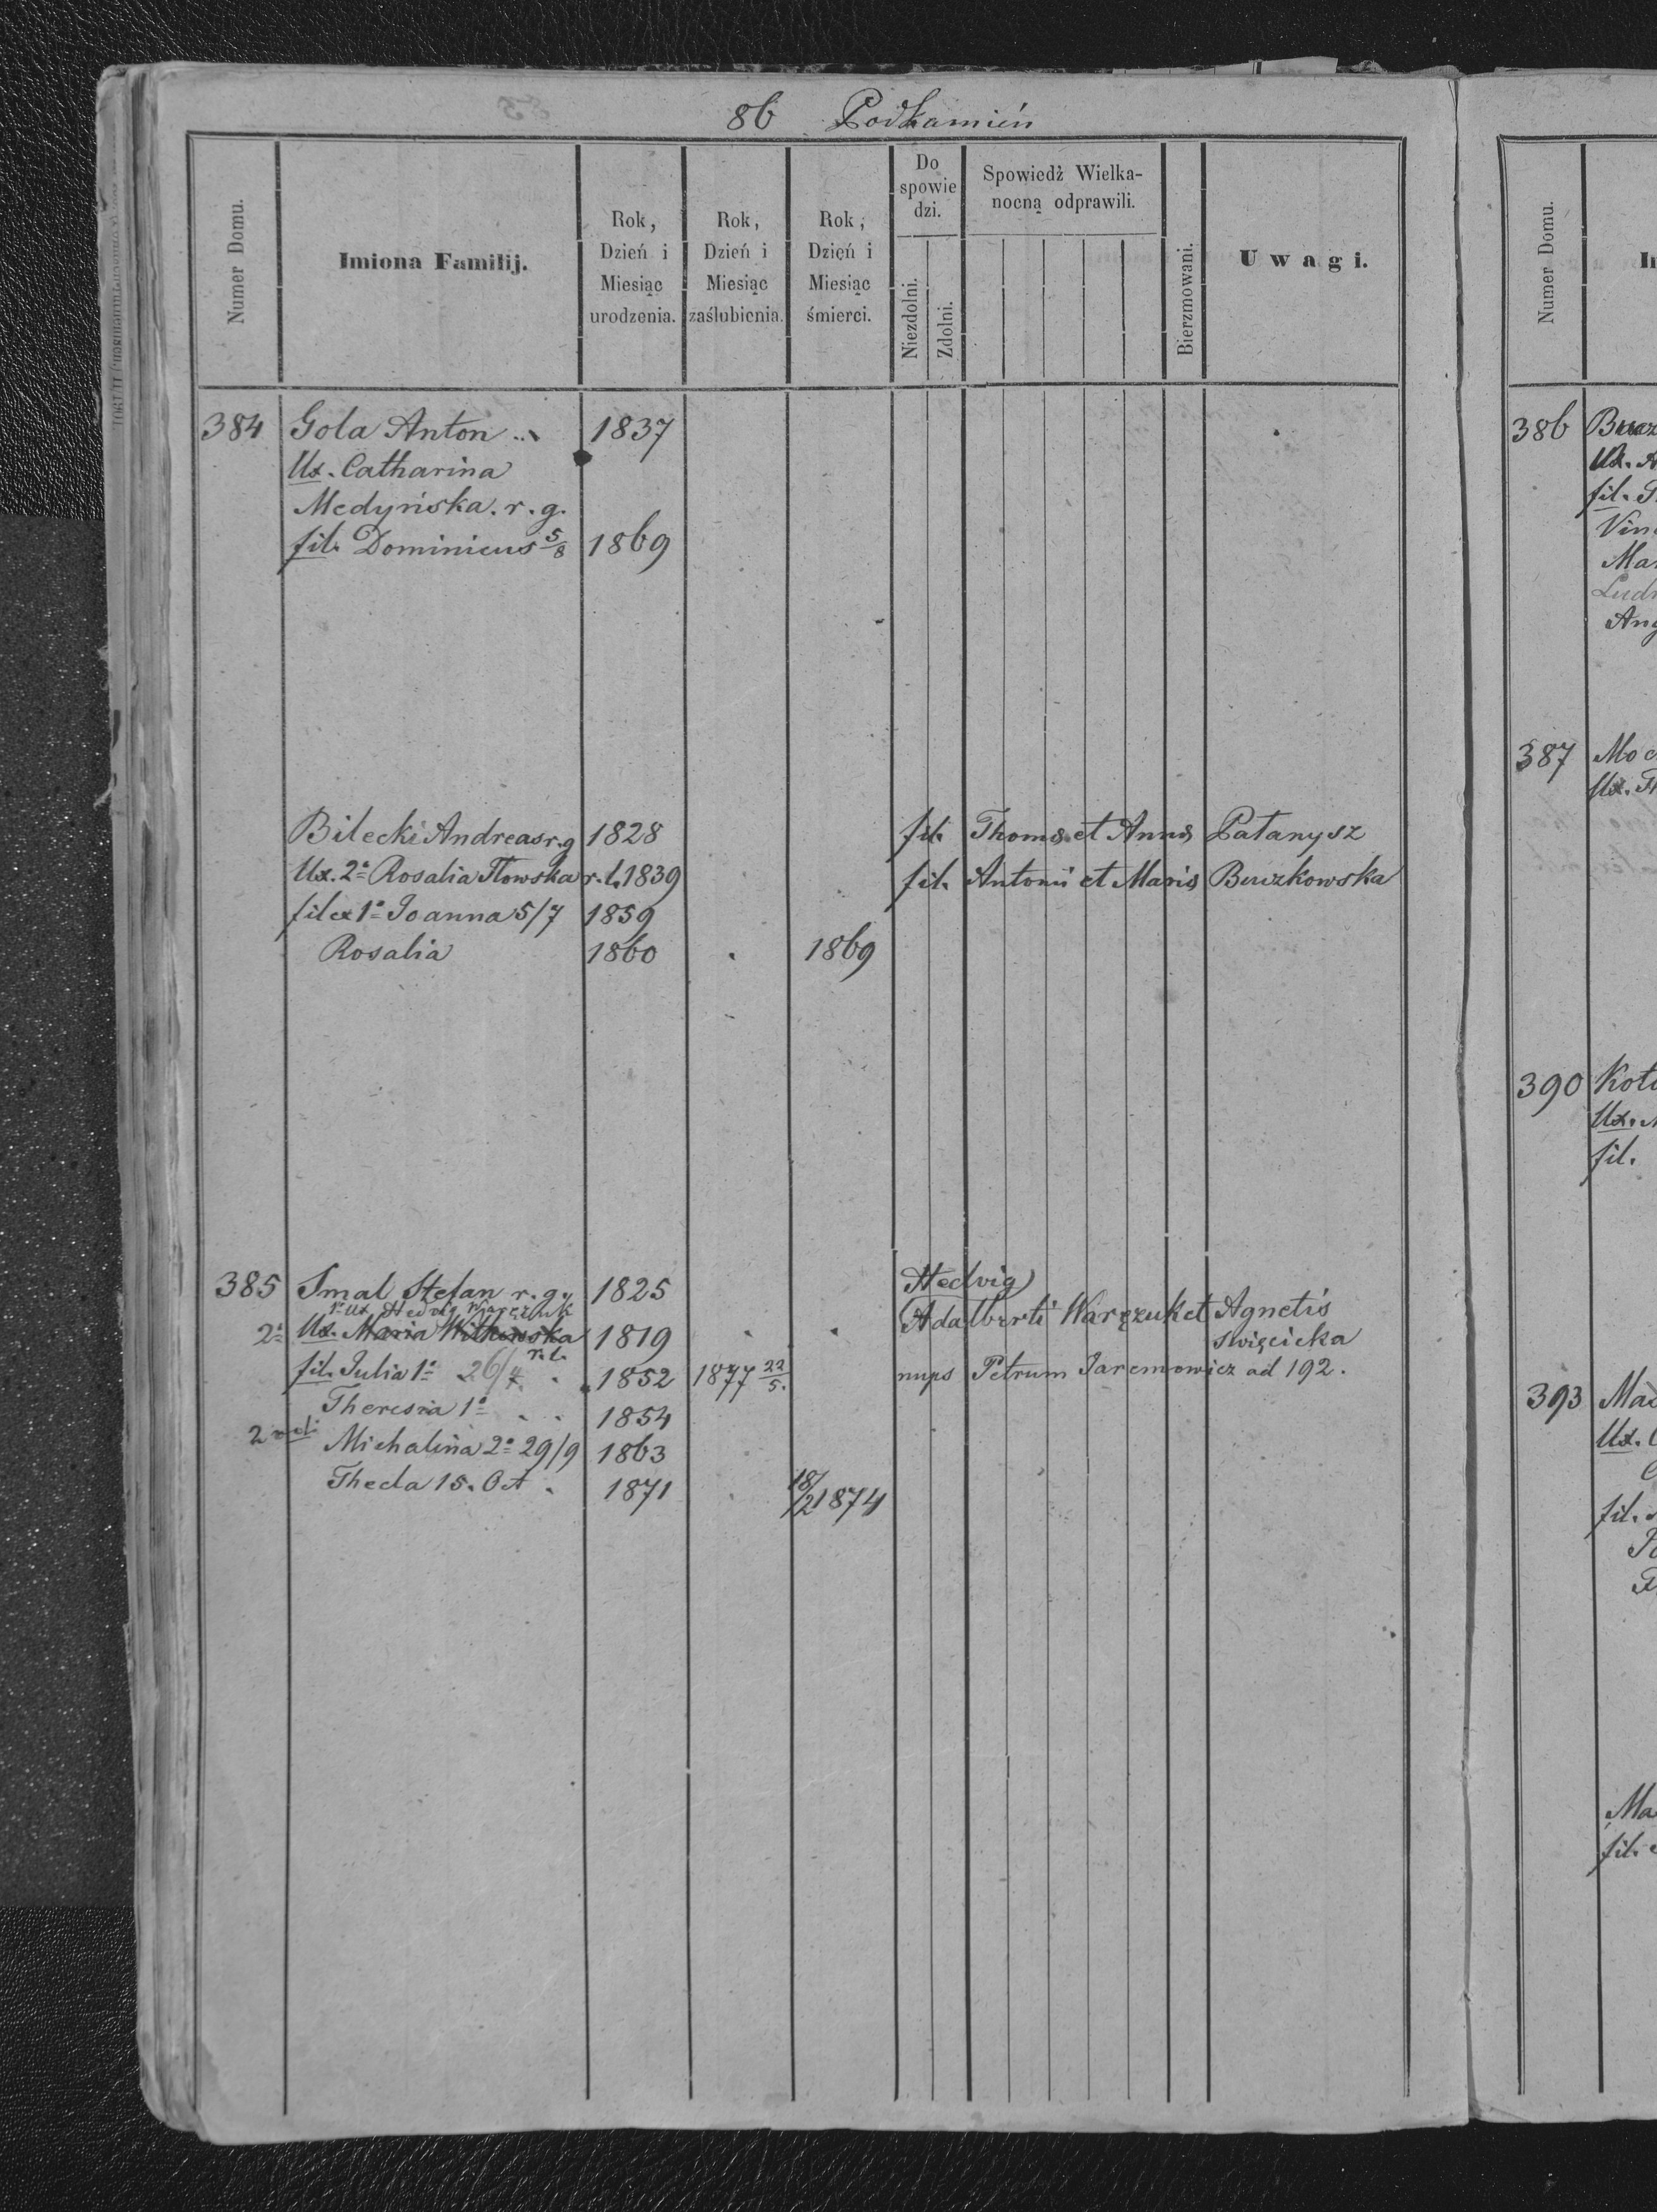 86 Podkamień
Numer Domu.
Imiona Familij.
Rok, Dzień i Miesiąc urodzenia.
Rok, Dzień i Miesiąc zaślubienia.
Rok, Dzień i Miesiąc śmierci.
Do spowiedzi.
Niezdolni.
Zdolni.
Spowiedź Wielkanocną odprawili.
Bierzmowani.
Uwagi.
384 Gola Anton 1837
Ux. Catharina
Medyńska. r. g.
fil. Dominicus 5/8 1869
Bilecki Andreas r. g 1828 fil. Thoms et Anns Patanysz
Ux. 2a Rosalia Tłowska r. l. 1839 fil. Antonii et Maris Buczkowska
fil ex 1a Joanna 5/7 1859
Rosalia 1860 1869
385 Smal Stefan r. g. 1825 Hedvig
1a Ux Hedvig Waręzuk Adalberti Waręzuk et Agnetis
2a Ux. Maria Witkowska r. l. 1819 Swięcicka
fil. Julia 1a 26/4 1852 1877 22/5. nups Petrum Jaremowicz ad 192.
Theresia 1a 1854
2 voti Michalina 2a 29/9 1863
Thecla 15. Oct 1871 18/2 1874
Numer Domu.
386
Ux.
fil.
Vin
Mar
Ang
387
Ux.
390
Ux.
fil.
393
Ux.
fil.
Ma
fil.